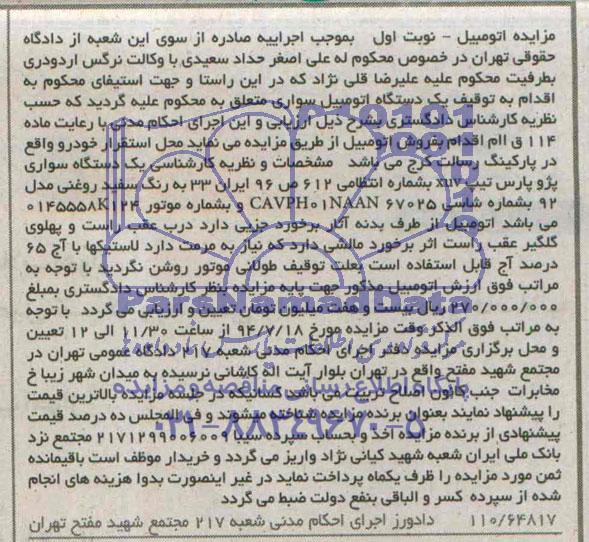 مزایده اتومبیل - نوبت اول بموجب اجراییه صادره از سوی این شعبه از دادگاه
حقوقی تهران در خصوص محکوم له علی اصغر حداد سعیدی با وکالت نرگس اردودری
بطرفیت محکوم علیه علیرضا قلی نژاد که در این راستا و جهت استیفای محکوم به
اقدام به توقیف یک دستگاه اتومبیل سواری متعلق به محکوم علیه گردید که حسب
نظریه کارشناس دادگستری بشرح ذیل ارزیابی و این اجرای احکام مدنی با رعایت ماده
۱۱۴ ق اام اقدام بفروش اتومبیل از طریق مزایده می نماید محل استقرار خودرو واقع
در پارکینگ رسالت کرج می باشد مشخصات و نظریه کارشناسی یک دستگاه سواری
پژو پارس تیپ xuv بشماره انتظامی ۶۱۲ ص ۹۶ ایران ۳۳ به رنگ سفید روغنی مدل
۹۲ بشماره شاسی ۶۷۰۲۵ CAVPH۰۱NAAN و بشماره موتور ۰۱۴۵۵۵۸K۱۲۴
می باشد اتومبیل از طرف بدنه آثار برخورد جزیی دارد درب عقب راست و پهلوی
گلگیر عقب راست اثر برخورد مالشی دارد که نیاز به مرمت دارد لاستیکها با آج ۶۵
درصد آج قابل استفاده است بعلت توقیف طولانی موتور روشن نگردید با توجه به
مراتب فوق ارزش اتومبیل مذکور جهت پایه مزایده بنظر کارشناس دادگستری بمبلغ
۲۷۰/۰۰۰/۰۰۰ ریال بیست و هفت میلیون تومان تعیین و ارزیابی می گردد با توجه
به مراتب فوق الذکر وقت مزایده مورخ ۹۴/۷/۱۸ از ساعت ۱۱/۳۰ الی ۱۲ تعیین
و محل برگزاری مزایده دفتر اجرای احکام مدنی شعبه ۲۱۷ دادگاه عمومی تهران در
مجتمع شهید مفتح واقع در تهران بلوار آیت اله کاشانی نرسیده به میدان شهر زیبا خ
مخابرات جنب کانون اصلاح تربیت می باشد کسانیکه در جلسه مزایده بالاترین قیمت
را پیشنهاد نمایند بعنوان برنده مزایده شناخته میشوند و فی المجلس ده درصد قیمت
پیشنهادی از برنده مزایده اخذ و بحساب سپرده سیبا ۲۱۷۱۲۹۹۰۰۶۰۰۹ مجتمع نزد
بانک ملی ایران شعبه شهید کیانی نژاد واریز می گردد و خریدار موظف است باقیمانده
ثمن مورد مزایده را ظرف یکماه پرداخت نماید در غیر اینصورت بدوا هزینه های انجام
شده از سپرده کسر و الباقی بنفع دولت ضبط می گردد
۱۱۰/۶۴۸۱۷ دادورز اجرای احکام مدنی شعبه ۲۱۷ مجتمع شهید مفتح تهران
ParsNamadData
پایگاه اطلاع رسانی مناقصه و مزایده
۰۲۱-۸۸۳۴۹۶۷۰-۵